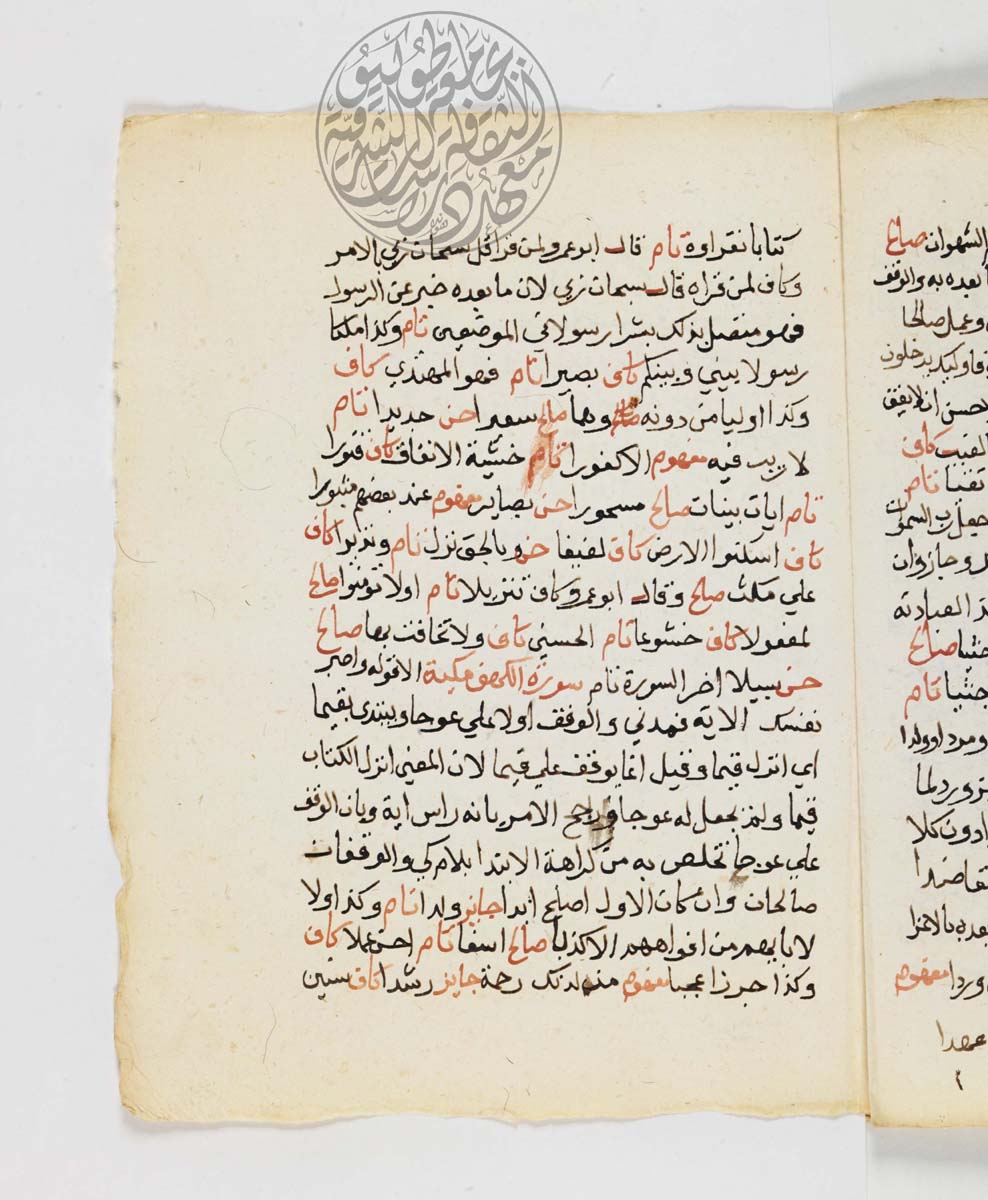 كتابا نقراوه تام قال ابو عمرو لمن قرا قل سبحان ربي بالامر
وكاف لمن قراه قال سبحان ربي لان ما بعده خبر عن الرسول
فهو متصل بذلك بشرا رسولا في الموضعين تام وكذا ملكا
رسولا بيني وبينكم كاف بصيرا تام فهو المهتدي كاف
وكذا اوليا من دونه وصما صالح سعيرا حسن جديدا تام
لا ريب فيه مفهوم الا كفورا تام خشية الانفاق كاف قتورا
تام ايات بينات صالح مسحورا حسن بصاير مفهوم عند بعضهم مثبورا
كاف اسكنوا الارض كاف لفيفا حسن وبالحق نزل تام ونذيرا كاف
علي مكث صالح وقال ابو عمرو كاف تنزيلا تام اولا تومنوا صالح
لمفعولا كاف خشوعا تام الحسني كاف ولا تخافت بها صالح
حسن سبيلا اخر السورة تام سورة الكهف مكية الا قوله واصبر
نفسك الاية فمدني والوقف اولا علي عوجا ويبتدي بقيما
اي انزل قيما وقيل انما يوقف علي قيما لان المعني انزل الكتاب
قيما ولم يجعل له عوجا ورجح الامر بانه راس اية وبان الوقف
علي عوجا تخلص به من كراهة الابتدا بلام كي والوقفان
صالحان وان كان الاول اصلح ابدا جايز ولدا تام وكذا ولا
لابايهم من افواههم الا كذبا صالح اسفا تام احسن عملا كاف
وكذا جرزا عجبا مفهوم من لدنك رحمة جايز رشدا كاف سنين
الشهوات صالح
بعده به والوقف
وعمل صالحا
اوليك يدخلون
حسن
كاف
تام
رب السموات
وجاز وان
العبادته
جثيا صالح
جثيا تام
ومردا وولدا
كلا
ضدا
وردا مفهوم
عهدا
معهد دراسات الثقافة الشرقية جامعة طوكيو